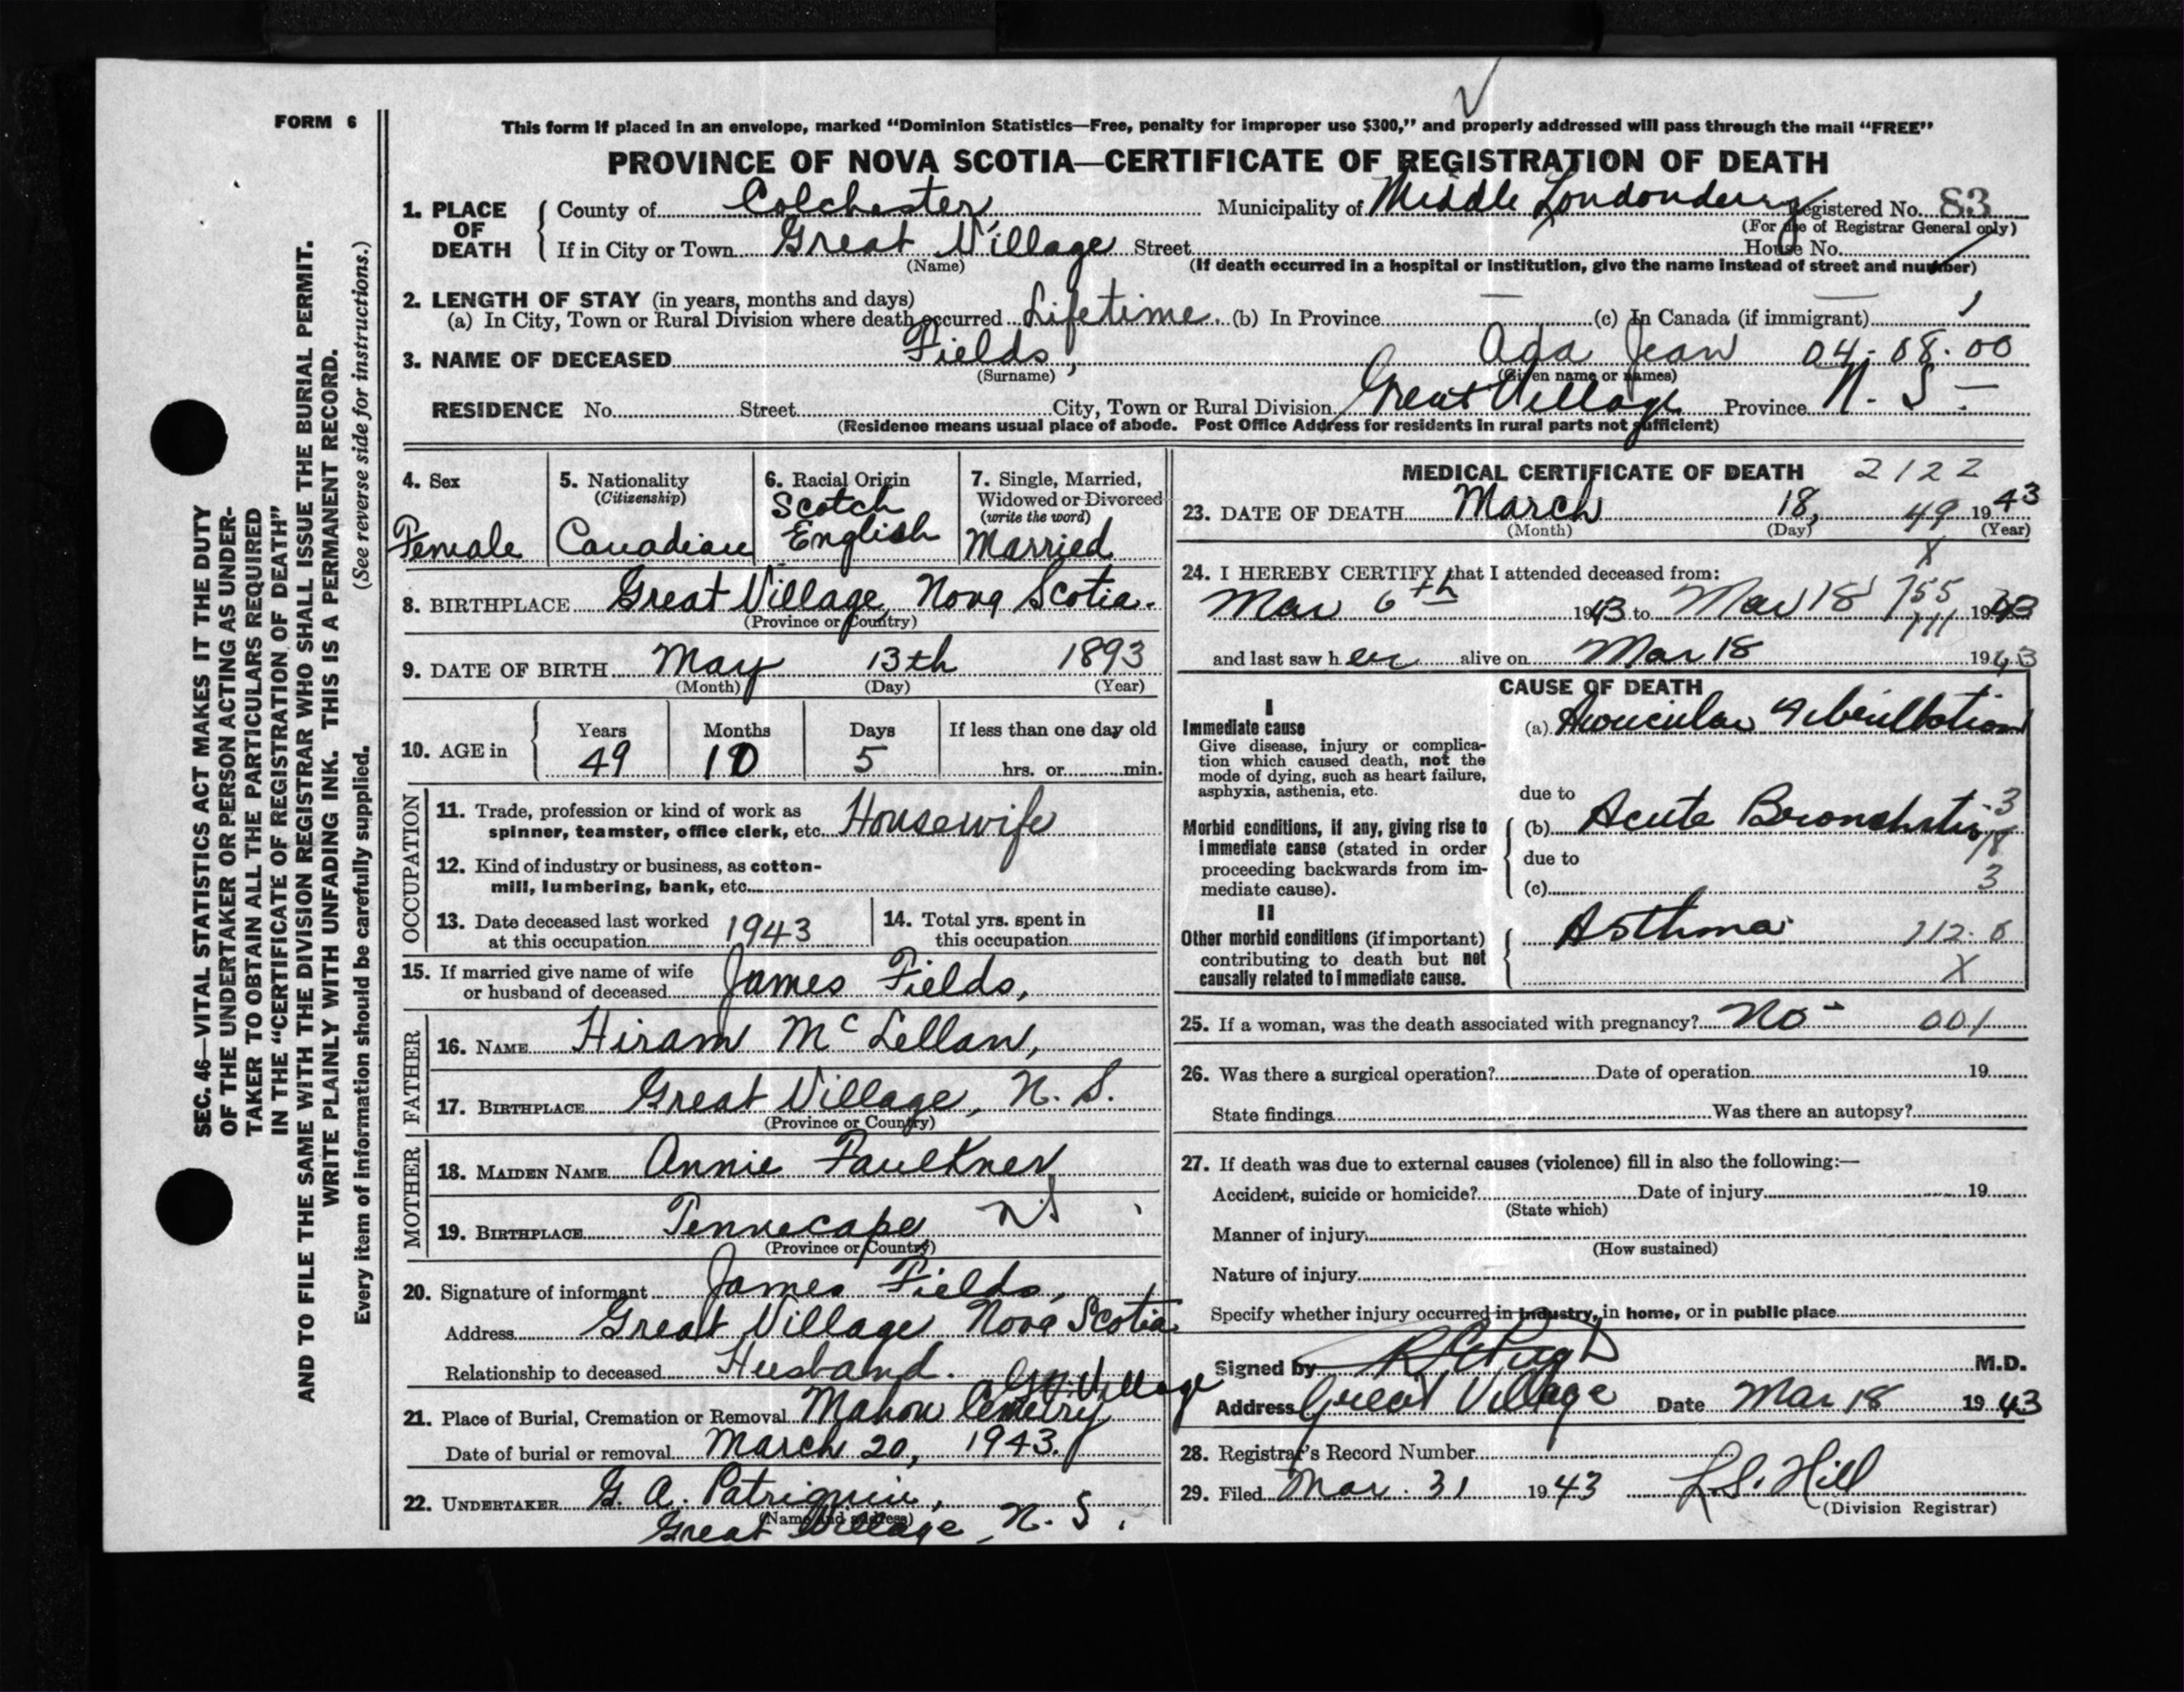 FORM 6
This form if placed in an envelope, marked "Dominion Statistics—Free, penalty for improper use $300," and properly addressed will pass through the mail "FREE"
PROVINCE OF NOVA SCOTIA—CERTIFICATE OF REGISTRATION OF DEATH
1. PLACE OF DEATH
County of Colchester, Municipality of Middle Londonderry Registered No. 83
(For use of Registrar General only)
If in City or Town Great Village Street House No.
(Name)
(If death occurred in a hospital or institution, give the name instead of street and number)
2. LENGTH OF STAY (in years, months and days)
(a) In City, Town or Rural Division where death occurred Lifetime. (b) In Province — (c) In Canada (if immigrant) —
3. NAME OF DECEASED Fields, Ada Jean 04-08-00
(Surname) (Given name or names)
RESIDENCE No. Street City, Town or Rural Division Great Village Province N. S.
(Residence means usual place of abode. Post Office Address for residents in rural parts not sufficient)
4. Sex
Female
5. Nationality
(Citizenship)
Canadian
6. Racial Origin
Scotch
English
7. Single, Married,
Widowed or Divorced
(write the word)
Married
8. BIRTHPLACE Great Village, Nova Scotia.
(Province or Country)
9. DATE OF BIRTH May 13th 1893
(Month) (Day) (Year)
10. AGE in
Years Months Days If less than one day old
49 10 5 hrs. or min.
OCCUPATION
11. Trade, profession or kind of work as
spinner, teamster, office clerk, etc. Housewife
12. Kind of industry or business, as cotton-
mill, lumbering, bank, etc.
13. Date deceased last worked
at this occupation 1943
14. Total yrs. spent in
this occupation
15. If married give name of wife
or husband of deceased James Fields,
FATHER
16. NAME Hiram McLellan,
17. BIRTHPLACE Great Village, N. S.
(Province or Country)
MOTHER
18. MAIDEN NAME Annie Faulkner
19. BIRTHPLACE Tennecape NS
(Province or Country)
20. Signature of informant James Fields,
Address Great Village, Nova Scotia
Relationship to deceased Husband.
21. Place of Burial, Cremation or Removal Mahon Cemetry Gt. Village
Date of burial or removal March 20, 1943.
22. UNDERTAKER G. A. Patriquin,
(Name and address)
Great Village, N. S.
MEDICAL CERTIFICATE OF DEATH 2122
23. DATE OF DEATH March 18, 49 1943
(Month) (Day) (Year)
X
24. I HEREBY CERTIFY that I attended deceased from:
Mar 6th 1943 to Mar 18 755 1943
111
and last saw her alive on Mar 18 1943
CAUSE OF DEATH
I
Immediate cause
Give disease, injury or complica-
tion which caused death, not the
mode of dying, such as heart failure,
asphyxia, asthenia, etc.
(a) Auricular Fibrillation
due to
Morbid conditions, if any, giving rise to
immediate cause (stated in order
proceeding backwards from im-
mediate cause).
(b) Acute Bronchitis 3
due to 18
(c) 3
II
Other morbid conditions (if important)
contributing to death but not
causally related to immediate cause.
Asthma 112.0
X
25. If a woman, was the death associated with pregnancy? No 001
26. Was there a surgical operation? Date of operation 19
State findings Was there an autopsy?
27. If death was due to external causes (violence) fill in also the following:—
Accident, suicide or homicide? Date of injury 19
(State which)
Manner of injury
(How sustained)
Nature of injury
Specify whether injury occurred in industry, in home, or in public place
Signed by M.D.
Address Great Village Date Mar 18 1943
28. Registrar's Record Number
29. Filed Mar. 31 1943 L.S. Hill
(Division Registrar)
SEC. 46—VITAL STATISTICS ACT MAKES IT THE DUTY
OF THE UNDERTAKER OR PERSON ACTING AS UNDER-
TAKER TO OBTAIN ALL THE PARTICULARS REQUIRED
IN THE "CERTIFICATE OF REGISTRATION OF DEATH"
AND TO FILE THE SAME WITH THE DIVISION REGISTRAR WHO SHALL ISSUE THE BURIAL PERMIT.
WRITE PLAINLY WITH UNFADING INK. THIS IS A PERMANENT RECORD.
Every item of information should be carefully supplied. (See reverse side for instructions.)